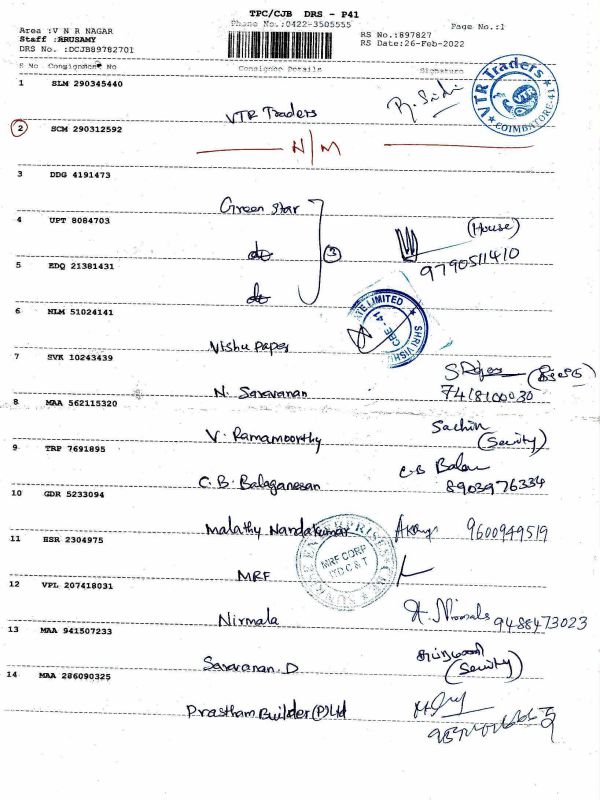 TPC/CJB DRS - P41
Phone No.:0422-3505555
Page No.:1
Area :V N R NAGAR
RS No.:897827
Staff :RRUSAMY
RS Date:26-Feb-2022
DRS No. :DCJB89782701
S No Consignment No Consigner Details Signature
1 SLM 290345440
VTR Traders
VTR Traders COIMBATORE-41
2 SCM 290312592
N/M
3 DDG 4191473
Green Star
4 UPT 8084703
do 3 (House)
9790511410
5 EDQ 21381431
do
6 NLM 51024141
Vishu Paper
ATE LIMITED SHRI VISHU CBE - 41
7 SVK 10243439
N. Saravanan
7418100030
8 MAA 562115320
V. Ramamoorthy Sachin
(Security)
9 TRP 7691895
C.B. Balaganesan C.B Balan
8903976334
10 GDR 5233094
Malathy Nandakumar 9600949519
11 HSR 2304975
MRF
ENTERPRISES MRF CORP
12 VPL 207418031
Nirmala 9488473023
13 MAA 941507233
Saravanan. D
(Security)
14 MAA 286090325
Prastham Builder (P) Ltd